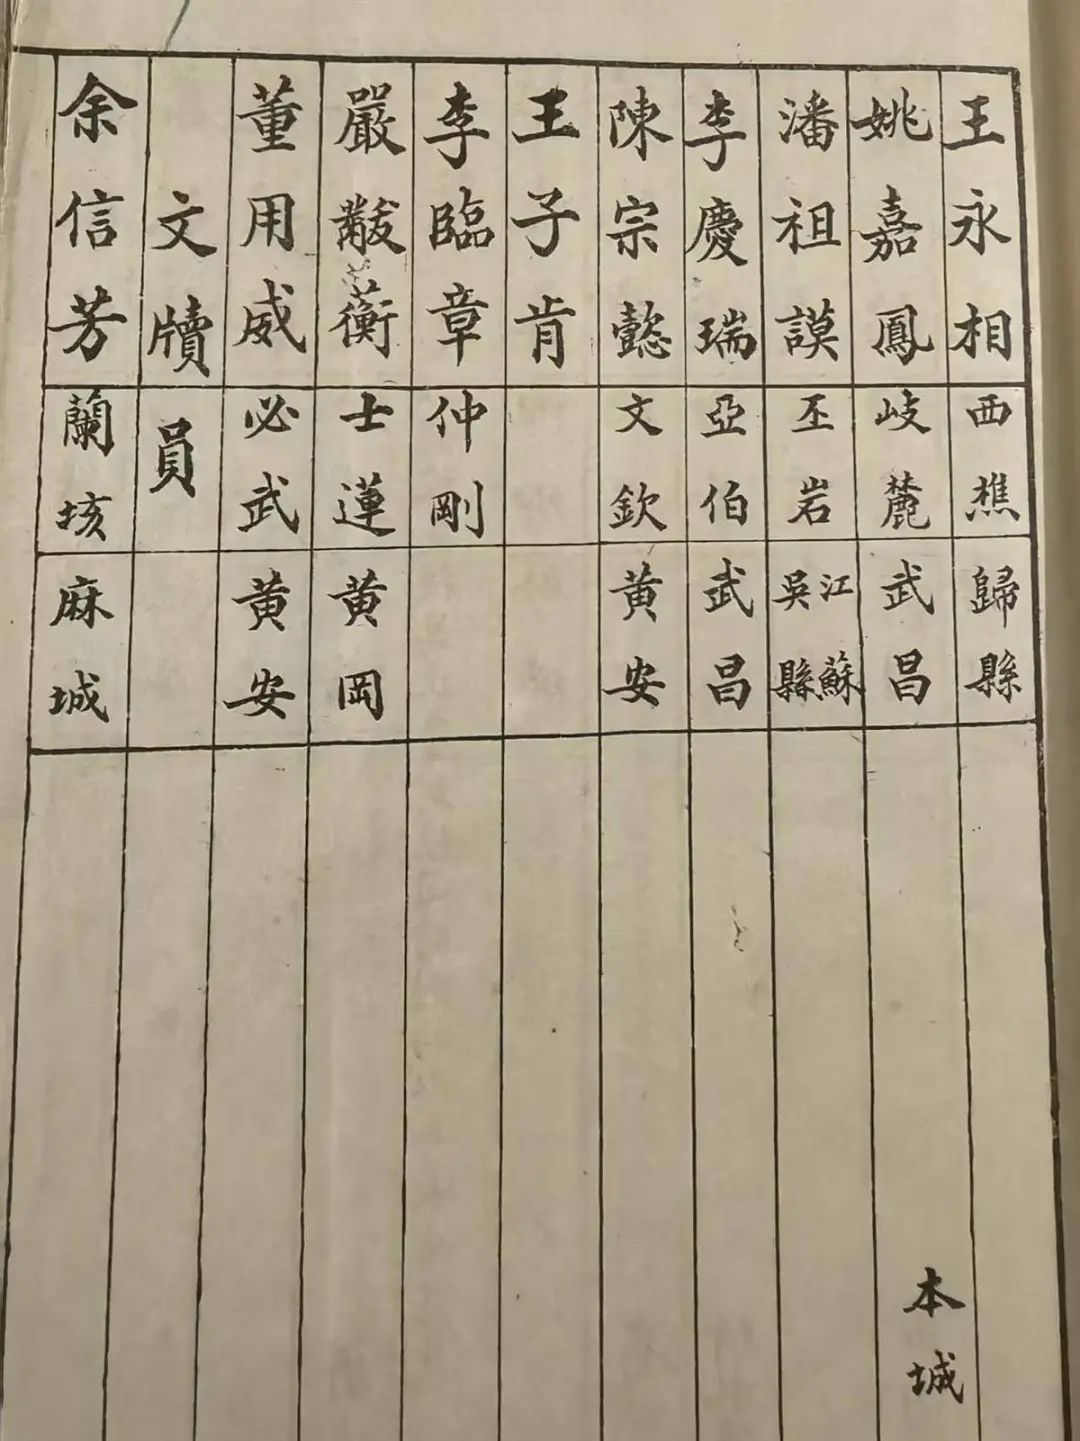 王永相 西樵 歸縣
姚嘉鳳 岐麓 武昌 本城
潘祖謨 丕岩 江蘇吳縣
李慶瑞 亞伯 武昌
陳宗懿 文欽 黃安
王子肯
李臨章 仲剛
嚴黻蘅 士蓮 黃岡
董用威 必武 黃安
文牘員
余信芳 蘭垓 麻城